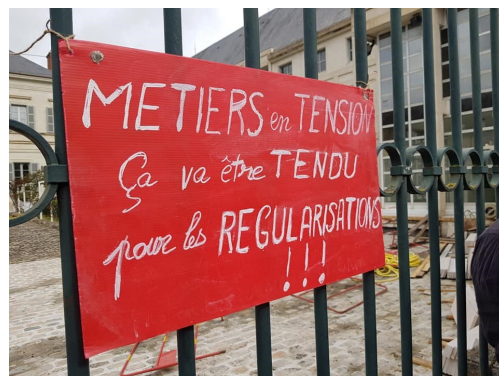 METIERS en TENSION
Ça va être TENDU
pour les REGULARISATIONS
!!!